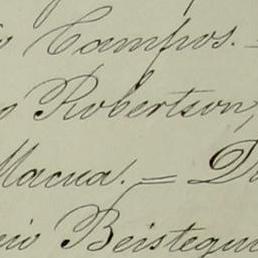 Campos. =
Robertson,
Macua. =
Beistegui